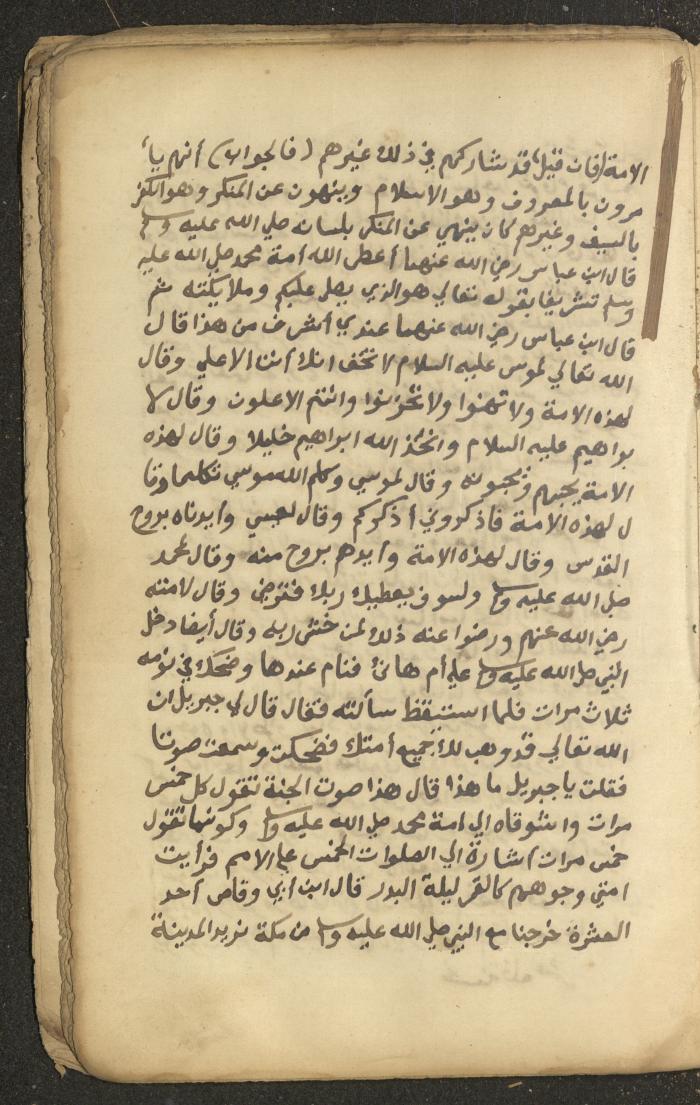 الامة (فان قيل) قد شاركهم في ذلك غيرهم (فالجواب) أنهم يأ
مرون بالمعروف وهو الاسلام وينهون عن المنكر وهو الكفر
بالسيف وغيرهم كان ينهي عن المنكر بلسانه صلي الله عليه وسلم
قال ابن عباس رضي الله عنهما أعطي الله أمة محمد صلي الله عليه
وسلم تشريفا بقوله تعالي هو الذي يصلي عليكم وملايكته ثم
قال ابن عباس رضي الله عنهما عندي أشرف من هذا قال
الله تعالي لموسي عليه السلام لا تخف انك أنت الاعلي وقال
لهذه الامة ولا تهنوا ولا تحزنوا وانتم الاعلون وقال لا
براهيم عليه السلام واتخذ الله ابراهيم خليلا وقال لهذه
الامة يحبهم ويحبونه وقال لموسي وكلم الله موسي تكليما وقا
ل لهذه الامة فاذكروني أذكركم وقال لعيسي وأيدناه بروح
القدس وقال لهذه الامة وأيدهم بروح منه وقال لمحمد
صلي الله عليه وسلم ولسوف يعطيك ربك فترضي وقال لامته
رضي الله عنهم ورضوا عنه ذلك لمن خشي ربه وقال أيضا دخل
النبي صلي الله عليه وسلم علي أم هانئ فنام عندها وضحك في نومه
ثلاث مرات فلما استيقظ سألته فقال قال لي جبريل ان
الله تعالي قد وهب لك جميع أمتك فضحكت وسمعت صوتا
فقلت يا جبريل ما هذا قال هذا صوت الجنة تقول كل خمس
مرات واشوقاه الي امة محمد صلي الله عليه وسلم وكونها تقول
خمس مرات اشارة الي الصلوات الخمس علي الامم فرأيت
امتي وجوههم كالقمر ليلة البدر قال ابن أبي وقاص أحد
العشرة خرجنا مع النبي صلي الله عليه وسلم من مكة نريد المدينة